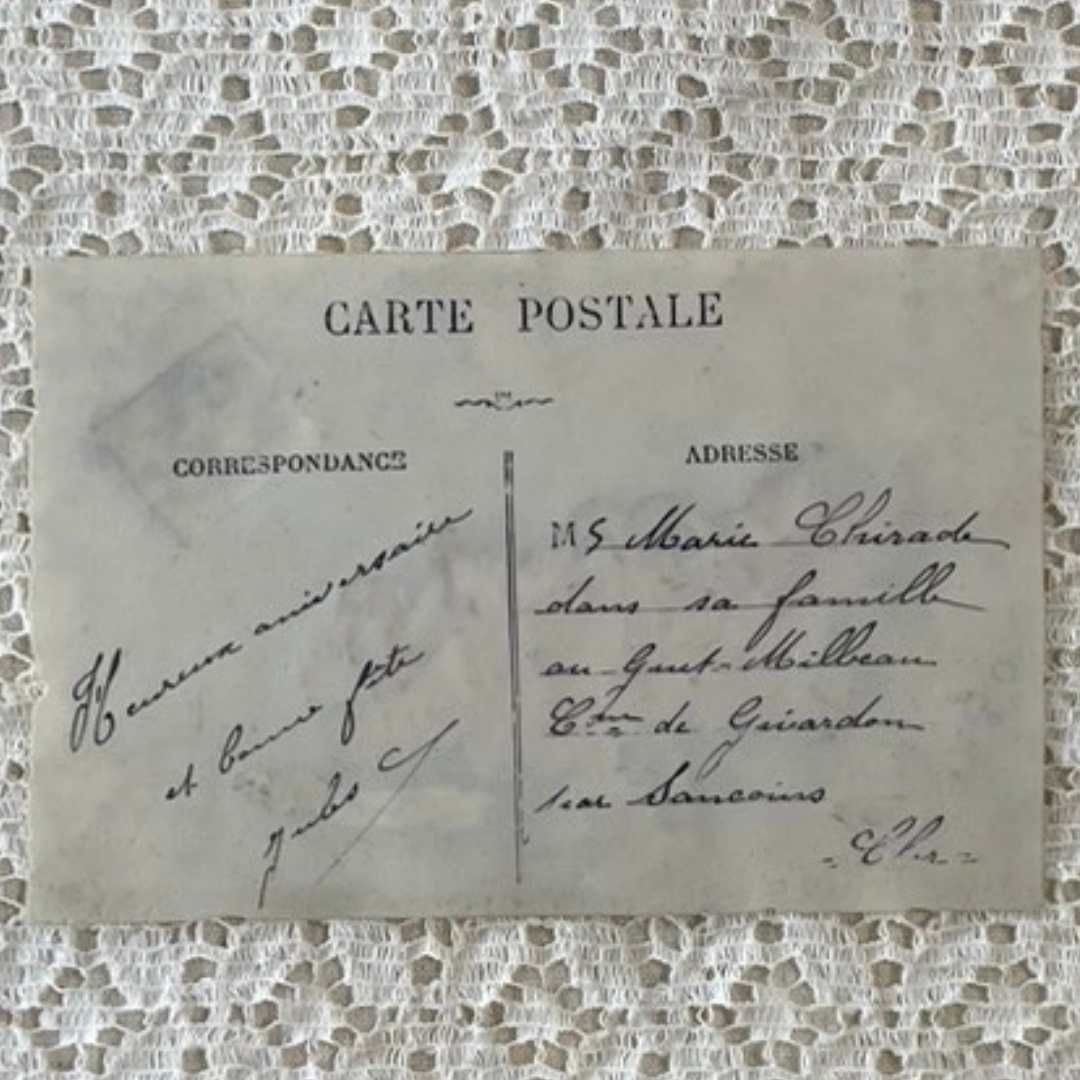 CARTE POSTALE
CORRESPONDANCE
Heureux aniversaire
et bonne fête
Jules
ADRESSE
M S Marie Thirade
dans sa famille
au Guet-Milbeau
Cne de Givardon
par Sancoins
- Cher =